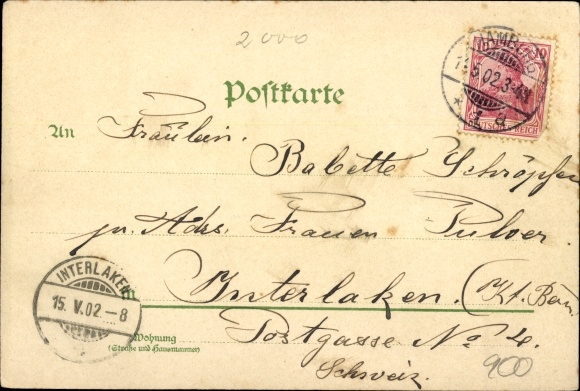 2000
HAMBURG
10
5.02.3-4N
DEUTSCHES REICH
Postkarte
An Fräulein.
Babette Schröpfer
pr. Adrs. Frauen Pulver.
INTERLAKEN
15. V. 02 – 8
Interlaken. (Kt. Bern
Wohnung
(Straße und Hausnummer)
Postgasse No 4.
Schweiz.
900